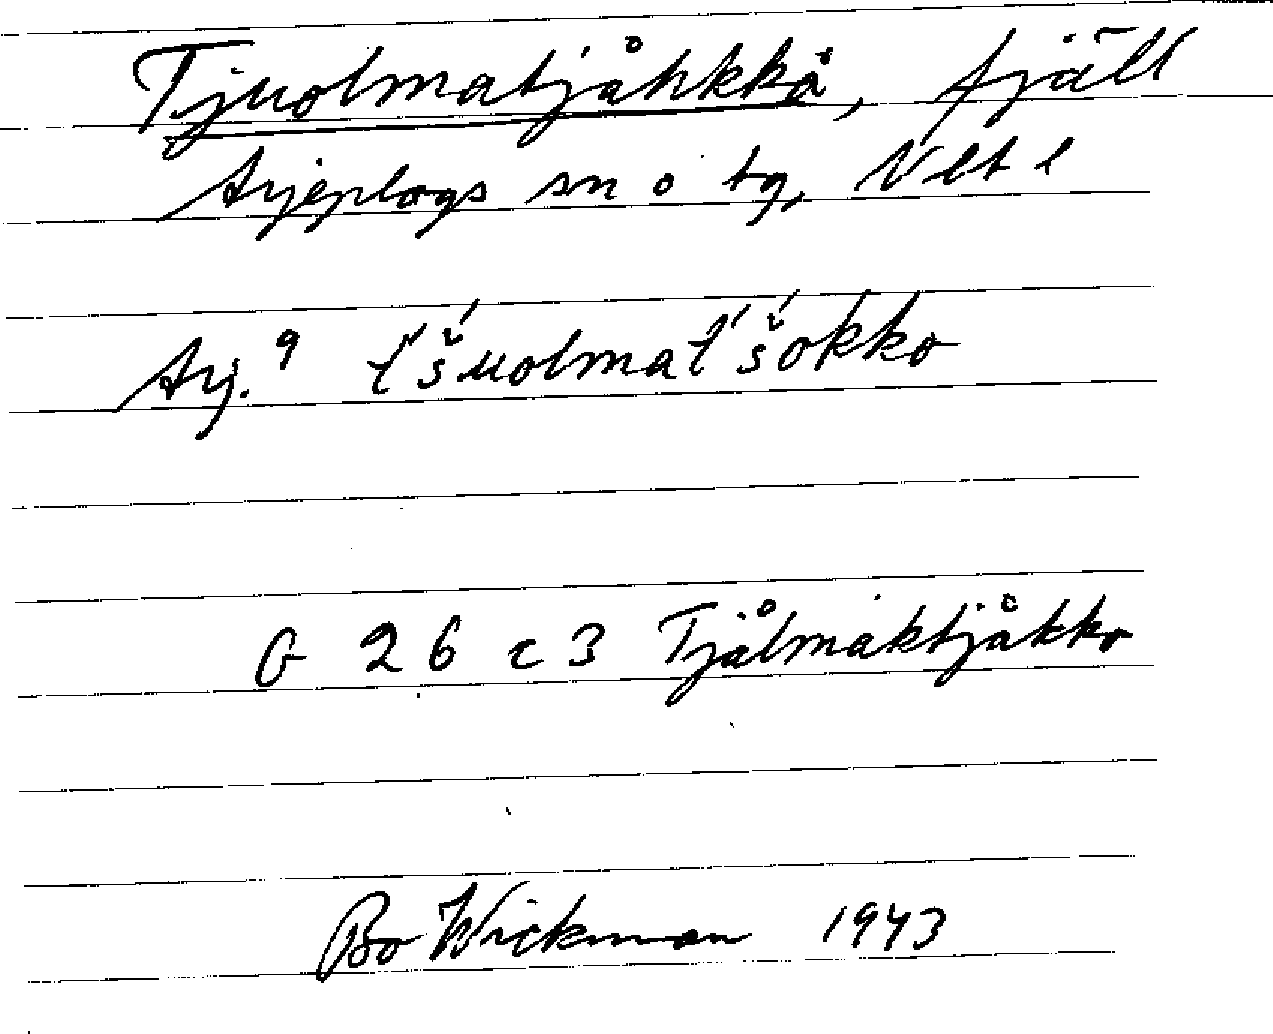 Tjuolmatjåhkkå, fjäll
Arjeplogs sn o tg, Nbt l
Arj. 9 t́š́uolmat́š́okko
G 26 c 3 Tjålmaktjåkko
Bo Wickman 1943